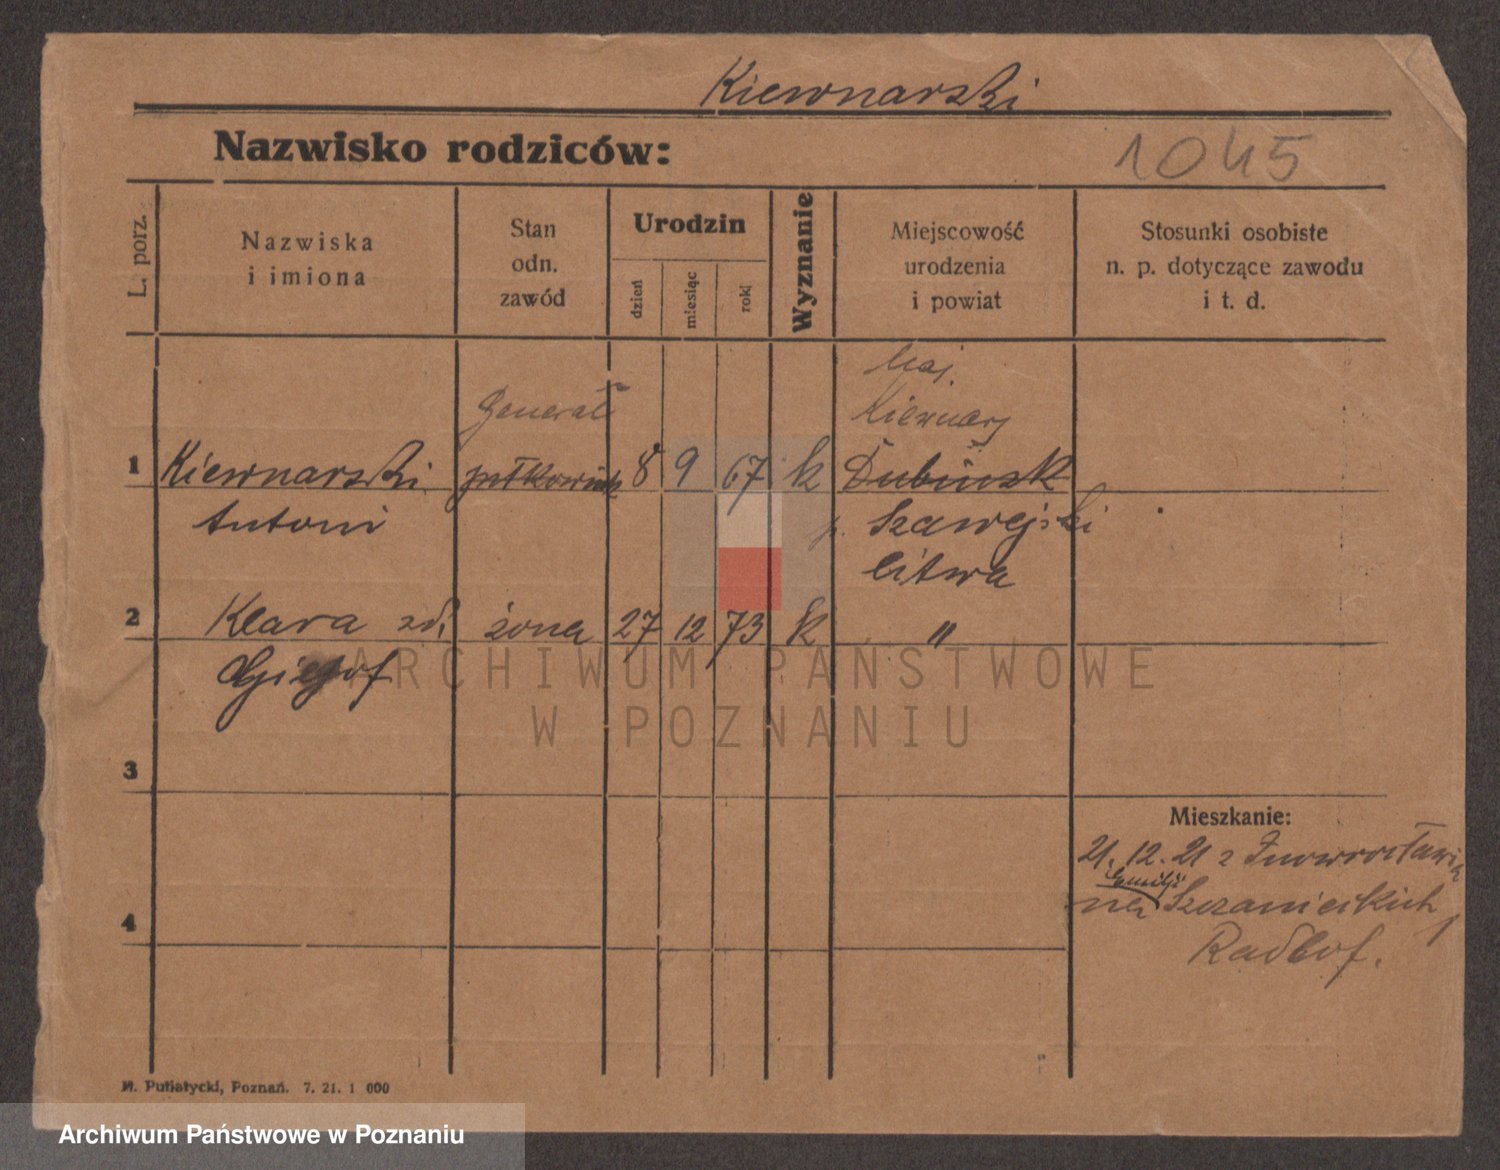 Kiewnarski
Nazwisko rodziców:
1045
L. porz.
Nazwiska
i imiona
Stan
odn.
zawód
Urodzin
dzień
miesiąc
rok
Wyznanie
Miejscowość
urodzenia
i powiat
Stosunki osobiste
n. p. dotyczące zawodu
i t. d.
Maj.
Generał Kiewnary
1 Kiewnarski pułkownik 8 9 67 k Dubińsk
Antoni p. Szawejski
Litwa
2 Klara zd. żona 27 12 73 k "
ARCHIWUM PAŃSTWOWE
W POZNANIU
3
Mieszkanie:
21. 12. 21 z Inowrocławia
Emilji
na Szczanieckich
4
Radłof.
M. Putiatycki, Poznań. 7. 21. 1 000
Archiwum Państwowe w Poznaniu